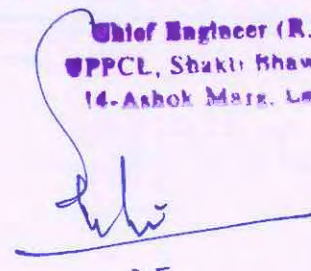 Chief Engineer (R.
UPPCL, Shakti Bhaw
14-Ashok Marg, L